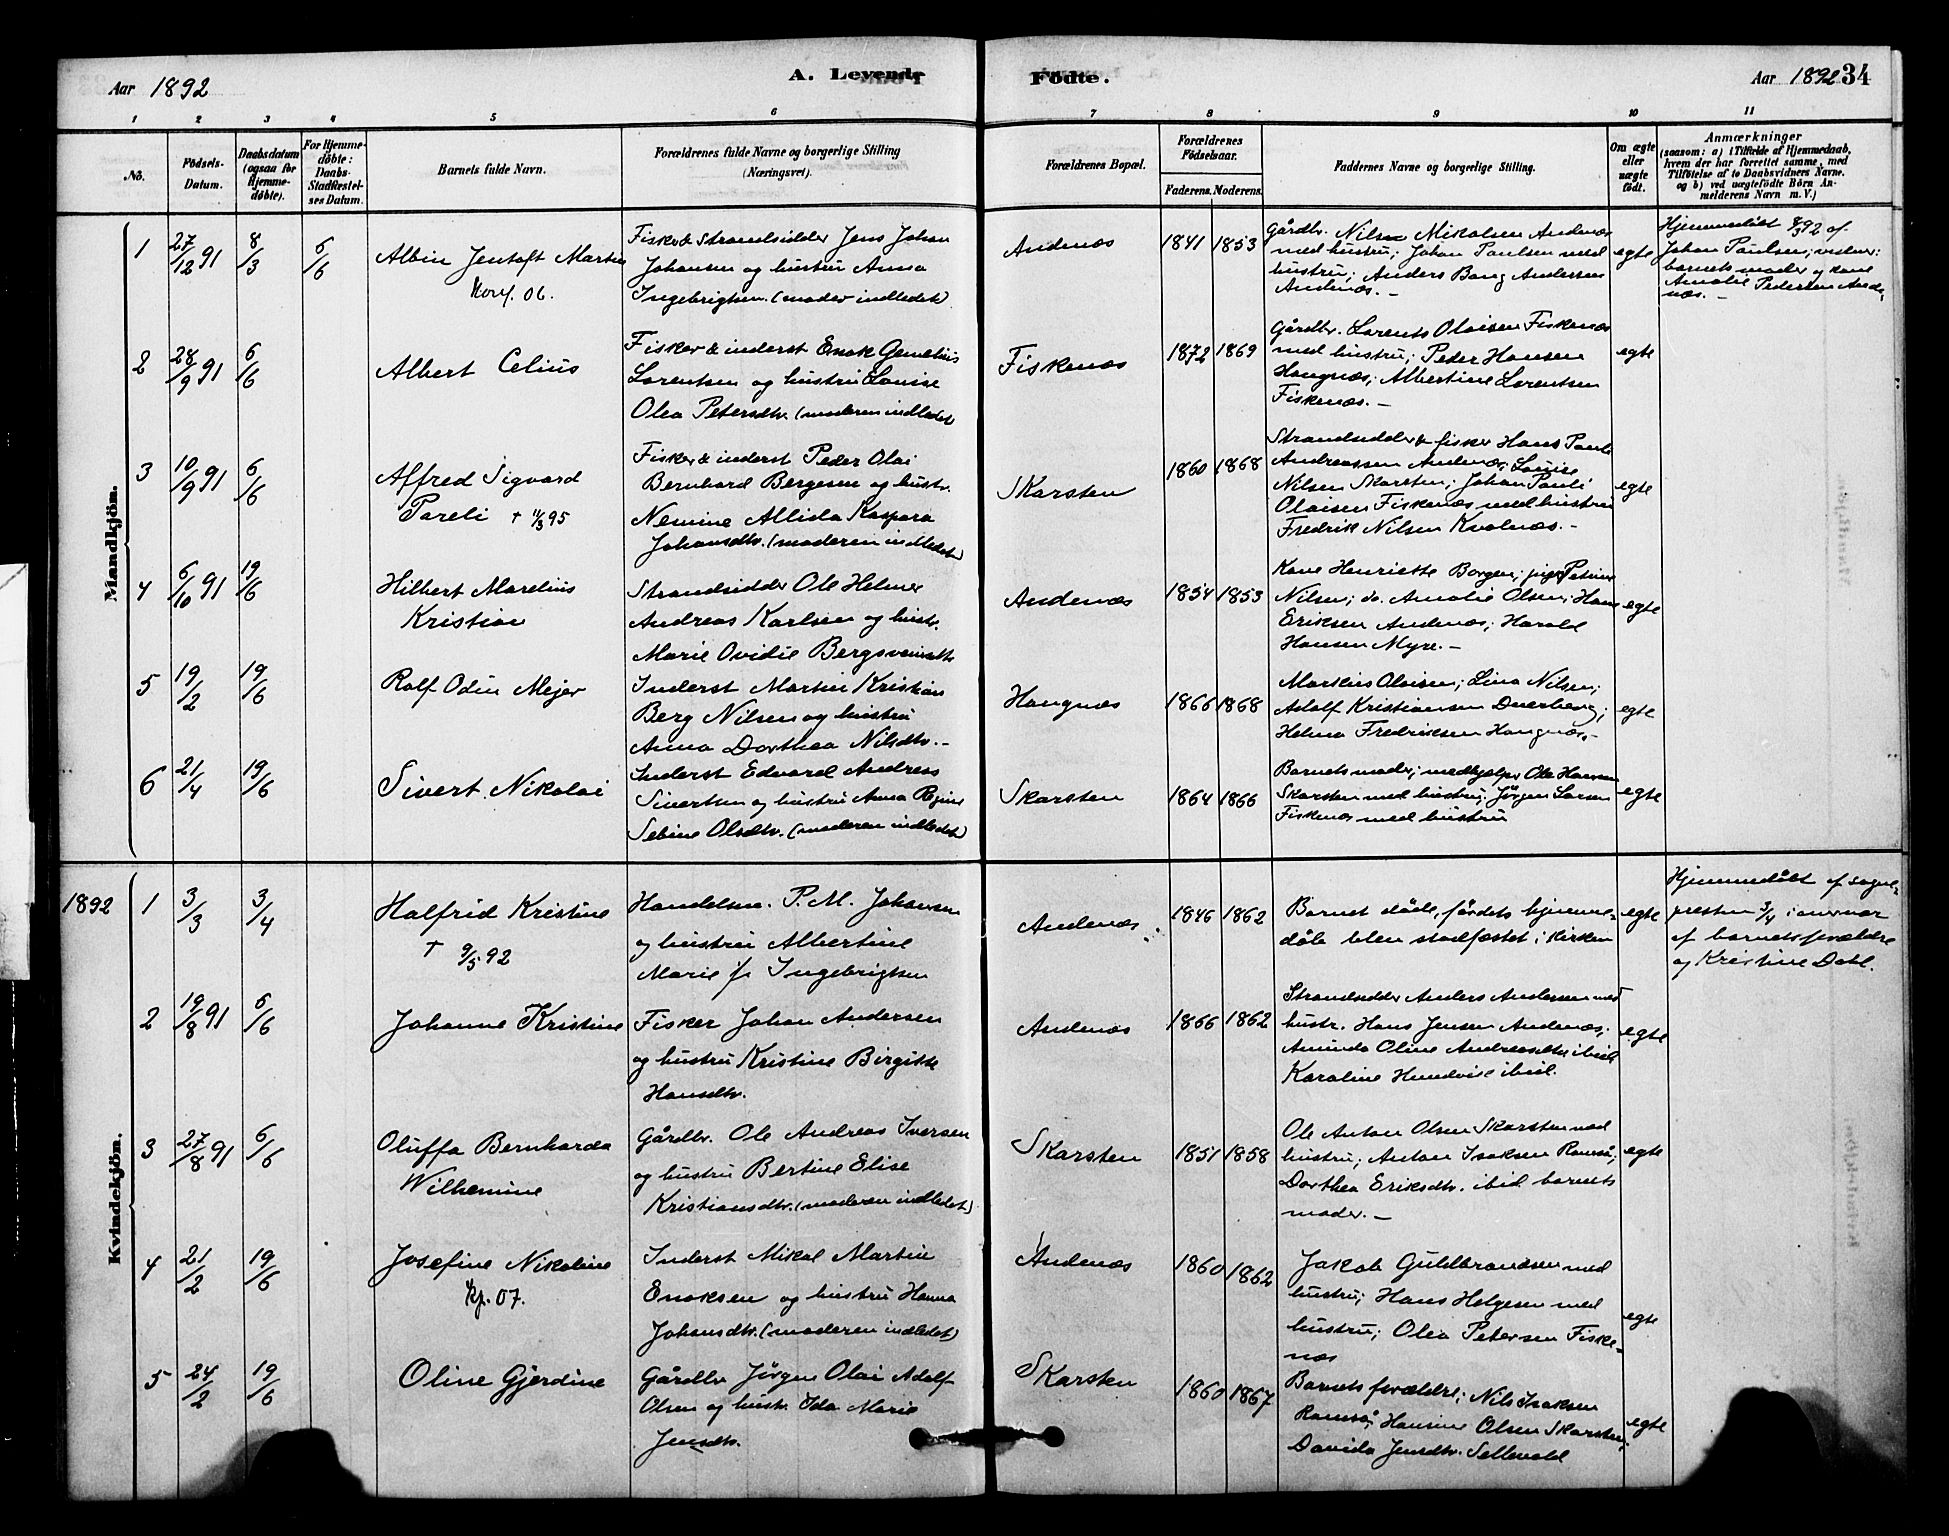 Aar 1892
A. Levende
Födte.
Aar 1892 34
1 2 3 4 5 6 7 8 9 10 11
No.
Födsels-
Datum.
Daabsdatum
(ogsaa for
Hjemme-
döbte).
For Hjemme-
döbte:
Daabs-
Stadfæstel-
ses Datum.
Barnets fulde Navn.
Forældrenes fulde Navne og borgerlige Stilling
(Næringsvei).
Forældrenes Bopæl.
Forældrenes
Födselsaar.
Faderens. Moderens.
Faddernes Navne og borgerlige Stilling.
Om ægte
eller
uægte
födt.
Anmærkninger
(saasom: a) i Tilfælde af Hjemmedaab,
hvem der har forrettet samme, med
Tilföielse af to Daabsvidners Navne,
og b) ved uægtefödte Börn An-
melderens Navn m. V.)
Mandkjön.
1
27/12 91
8/3
6/6
Albin Jentoft Martin
Konf. 06.
Fisker & Strandsidder Jens Johan
Johansen og hustru Anna
Ingebrigtsen. (moder indledet)
Andenæs
1841 1853
Gårdbr. Nils Mikalsen Andenæs
med hustru; Johan Paulsen med
hustru; Anders Bang Andersen
Andenæs. –
egte
Hjemmedöbt 8/3 92 af
Johan Paulsen; vidner:
barnets moder og kone
Amalie Pedersen Ande-
næs. –
2
28/9 91
6/6
Albert Celius
Fisker & inderst Enok Gemelius
Lorentsen og hustru Louise
Olea Petersdtr. (moderen indledet)
Fiskenæs
1872 1869
Gårdbr. Lorents Olaisen Fiskenæs
med hustru; Peder Hansen
Haugnæs; Albertine Lorentsen
Fiskenæs. –
egte
3
10/9 91
6/6
Alfred Sigvard
Pareli † 11/3 95
Fisker & inderst Peder Olai
Bernhard Bergesen og hustr.
Nemine Allida Kaspara
Johansdtr. (moderen indledet)
Skarsten
1860 1868
Strandsidder & fisker Hans Pauli
Andreassen Andenæs; Louise
Nilsen Skarsten; Johan Pauli
Olaisen Fiskenæs med hustru
Fredrik Nilsen Kvalnæs. –
egte
4
6/10 91
19/6
Hilbert Marelius
Kristian
Strandsidder Ole Helmer
Andreas Karlsen og hustr.
Marie Ovidie Bergsveinsdtr.
Andenæs
1854 1853
Kone Henriette Borgen; pige Petrine
Nilsen; do. Amalie Olsen; Hans
Eriksen Andenæs; Harald
Hansen Myre. –
egte
5
19/2
19/6
Rolf Odin Mejer
Inderst Martin Kristian
Berg Nilsen og hustru
Anna Dorthea Nilsdtr. –
Haugnæs
1866 1868
Markus Olaisen; Lina Nilsen;
Adolf Kristiansen Dverberg;
Helma Fredriksen Haugnæs. –
egte
6
21/4
19/6
Sivert Nikolai
Inderst Edvard Andreas
Sivertsen og hustru Anna Regine
Sebine Olsdtr. (moderen indledet)
Skarsten
1864 1866
Barnets moder; medhjælper Ole Hansen
Skarsten med hustru; Jörgen Larsen
Fiskenæs med hustru
egte
1892
Kvindekjön.
1
3/3
3/4
Halfrid Kristine
† 9/5 92
Handelsm. P. M. Johansen
og hustru Albertine
Marie f. Ingebrigtsen
Andenæs
1846 1862
Barnet döde, fördets hjemme-
dåb blev stadfæstet i kirken
egte
Hjemmedöbt af sogne-
presten 3/4 i nærvær
af barnets forældre
og Kristine Dahl.
2
19/8 91
6/6
Johanne Kristine
Fisker Johan Andersen
og hustru Kristine Birgitte
Hansdtr.
Andenæs
1866 1862
Strandsidder Anders Andersen med
hustr. Hans Jensen Andenæs;
Amunda Oline Andreasdtr. ibid
Karoline Hundvise ibid.
egte
3
27/8 91
6/6
Oluffa Bernharda
Wilhemine
Gårdbr. Ole Andreas Iversen
og hustru Bertine Elise
Kristiansdtr. (moderen indledet)
Skarsten
1851 1858
Ole Anton Olsen Skarsten med
hustru; Anton Isaksen Ramså;
Dorthea Eriksdtr. ibid. barnets
moder. –
egte
4
21/2
19/6
Josefine Nikoline
Kf. 07.
Inderst Mikal Martin
Enoksen og hustru Hanna
Johansdtr. (moderen indledet)
Andenæs
1860 1862
Jakob Guldbrandsen med
hustru; Hans Helgesen med
hustru; Olea Petersen Fiske-
næs
egte
5
24/2
19/6
Oline Gjerdine
Gårdbr Jörgen Olai Adolf
Olsen og hustr. Ida Marie
Jensdtr.
Skarsten
1860 1867
Barnets forældre; Nils Isaksen
Ramså; Hansine Olsen Skarsten;
Davida Jensdtr. Sellevold
egte